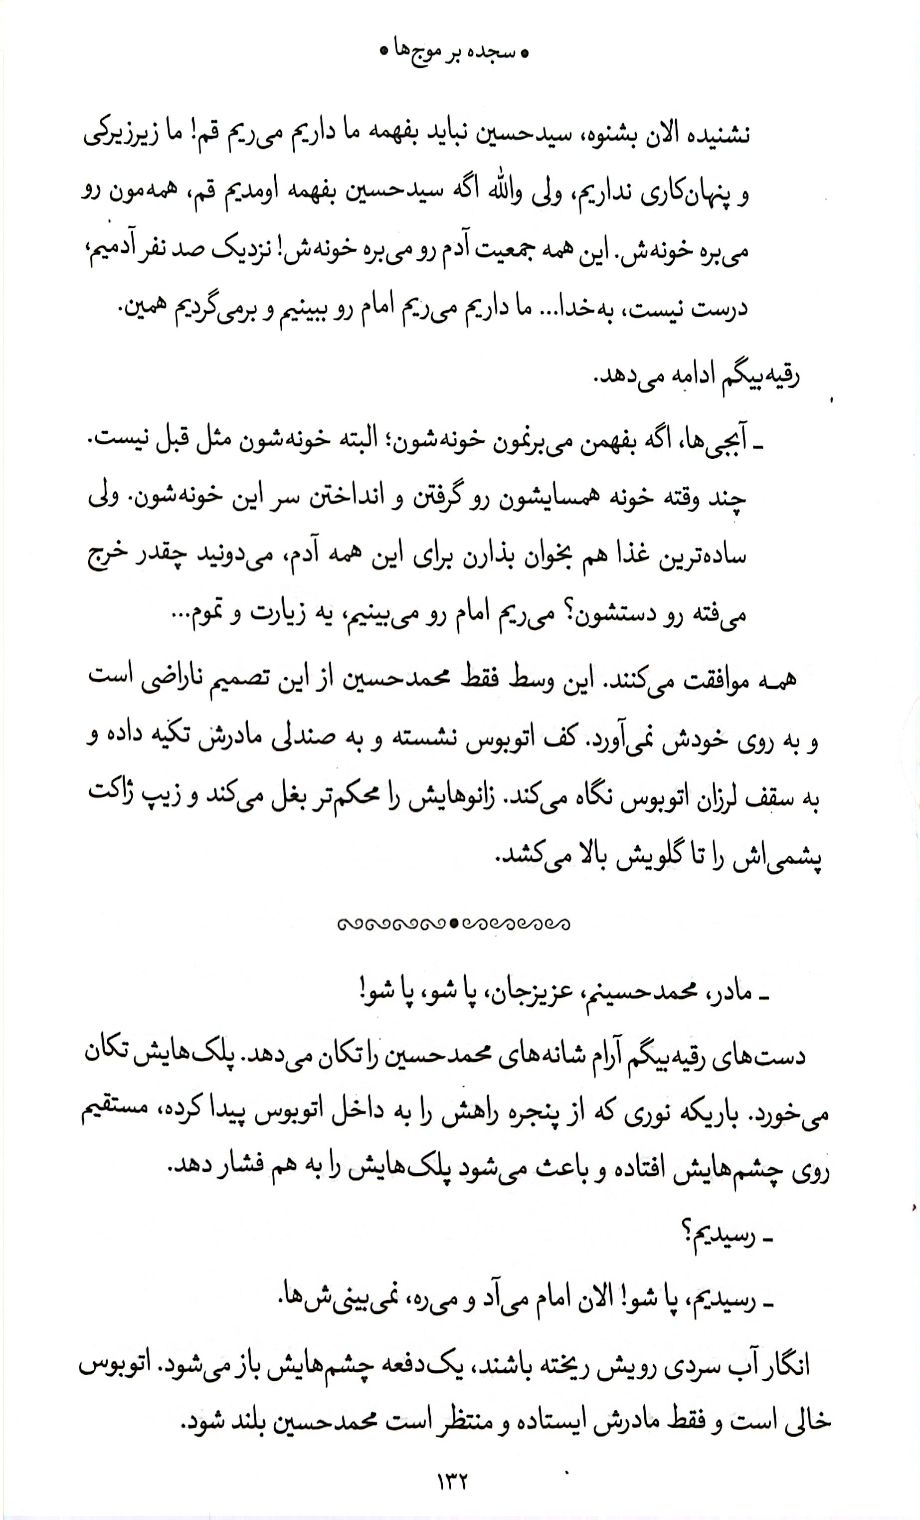 • سجده بر موج‌ها •
نشنیده الان بشنوه، سیدحسین نباید بفهمه ما داریم می‌ریم قم! ما زیرزیرکی
و پنهان‌کاری نداریم، ولی والله اگه سیدحسین بفهمه اومدیم قم، همه‌مون رو
می‌بره خونه‌ش. این همه جمعیت آدم رو می‌بره خونه‌ش! نزدیک صد نفر آدمیم،
درست نیست، به‌خدا... ما داریم می‌ریم امام رو ببینیم و برمی‌گردیم همین.
رقیه‌بیگم ادامه می‌دهد.
ـ آبجی‌ها، اگه بفهمن می‌برنمون خونه‌شون؛ البته خونه‌شون مثل قبل نیست.
چند وقته خونه همسایشون رو گرفتن و انداختن سر این خونه‌شون. ولی
ساده‌ترین غذا هم بخوان بذارن برای این همه آدم، می‌دونید چقدر خرج
می‌فته رو دستشون؟ می‌ریم امام رو می‌بینیم، یه زیارت و تموم...
همه موافقت می‌کنند. این وسط فقط محمدحسین از این تصمیم ناراضی است
و به روی خودش نمی‌آورد. کف اتوبوس نشسته و به صندلی مادرش تکیه داده و
به سقف لرزان اتوبوس نگاه می‌کند. زانوهایش را محکم‌تر بغل می‌کند و زیپ ژاکت
پشمی‌اش را تا گلویش بالا می‌کشد.
ـ مادر، محمدحسینم، عزیزجان، پا شو، پا شو!
دست‌های رقیه‌بیگم آرام شانه‌های محمدحسین را تکان می‌دهد. پلک‌هایش تکان
می‌خورد. باریکه نوری که از پنجره راهش را به داخل اتوبوس پیدا کرده، مستقیم
روی چشم‌هایش افتاده و باعث می‌شود پلک‌هایش را به هم فشار دهد.
ـ رسیدیم؟
ـ رسیدیم، پا شو! الان امام می‌آد و می‌ره، نمی‌بینی‌ش‌ها.
انگار آب سردی رویش ریخته باشند، یک‌دفعه چشم‌هایش باز می‌شود. اتوبوس
خالی است و فقط مادرش ایستاده و منتظر است محمدحسین بلند شود.
۱۳۲